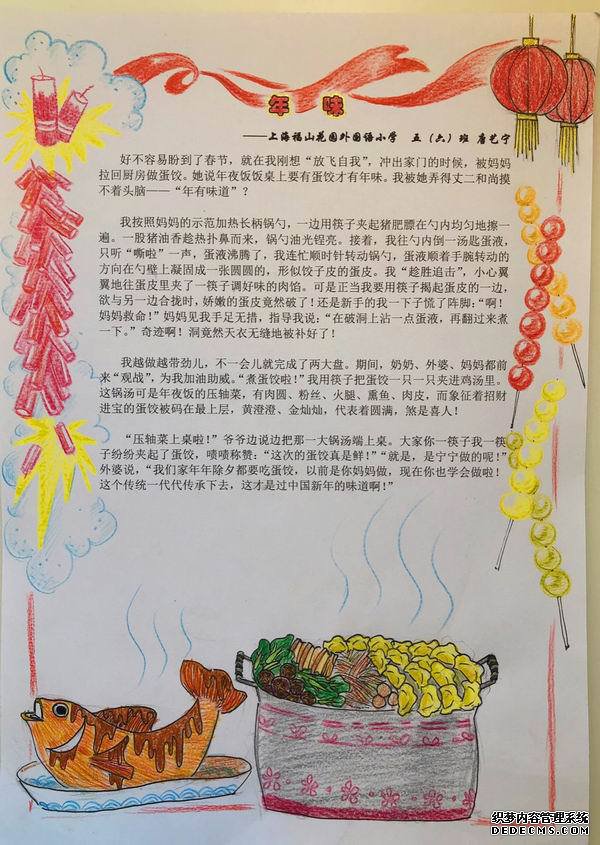 年 味
——上海福山花园外国语小学 五（六）班 唐艺宁
好不容易盼到了春节，就在我刚想“放飞自我”，冲出家门的时候，被妈妈
拉回厨房做蛋饺。她说年夜饭饭桌上要有蛋饺才有年味。我被她弄得丈二和尚摸
不着头脑——“年有味道”？
我按照妈妈的示范加热长柄锅勺，一边用筷子夹起猪肥膘在勺内均匀地擦一
遍。一股猪油香趁热扑鼻而来，锅勺油光锃亮。接着，我往勺内倒一汤匙蛋液，
只听“嘶啦”一声，蛋液沸腾了，我连忙顺时针转动锅勺，蛋液顺着手腕转动的
方向在勺壁上凝固成一张圆圆的，形似饺子皮的蛋皮。我“趁胜追击”，小心翼
翼地往蛋皮里夹了一筷子调好味的肉馅。可是正当我要用筷子揭起蛋皮的一边，
欲与另一边合拢时，娇嫩的蛋皮竟然破了！还是新手的我一下子慌了阵脚：“啊！
妈妈救命！”妈妈见我手足无措，指导我说：“在破洞上沾一点蛋液，再翻过来煮
一下。”奇迹啊！洞竟然天衣无缝地被补好了！
我越做越带劲儿，不一会儿就完成了两大盘。期间，奶奶、外婆、妈妈都前
来“观战”，为我加油助威。“煮蛋饺啦！”我用筷子把蛋饺一只一只夹进鸡汤里。
这锅汤可是年夜饭的压轴菜，有肉圆、粉丝、火腿、熏鱼、肉皮，而象征着招财
进宝的蛋饺被码在最上层，黄澄澄、金灿灿，代表着圆满，煞是喜人！
“压轴菜上桌啦！”爷爷边说边把那一大锅汤端上桌。大家你一筷子我一筷
子纷纷夹起了蛋饺，啧啧称赞：“这次的蛋饺真是鲜！”“就是，是宁宁做的呢！”
外婆说，“我们家年年除夕都要吃蛋饺，以前是你妈妈做，现在你也学会做啦！
这个传统一代代传承下去，这才是过中国新年的味道啊！”
织梦内容管理系统
DEDECMS.COM